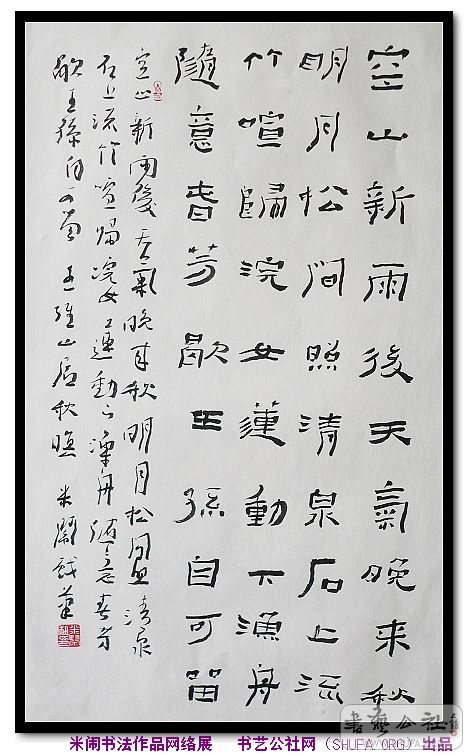 空山新雨後天氣晚來秋
明月松間照清泉石上流
竹喧歸浣女蓮動下漁舟
隨意春芳歇王孫自可留
空山新雨後天氣晚來秋明月松間照清泉
石上流竹喧歸浣女蓮動下漁舟隨意春芳
歇王孫自可留 王維山居秋暝 米鬧戲筆
書藝公社
米闹书法作品网络展 书艺公社网（SHUFA.ORG）出品